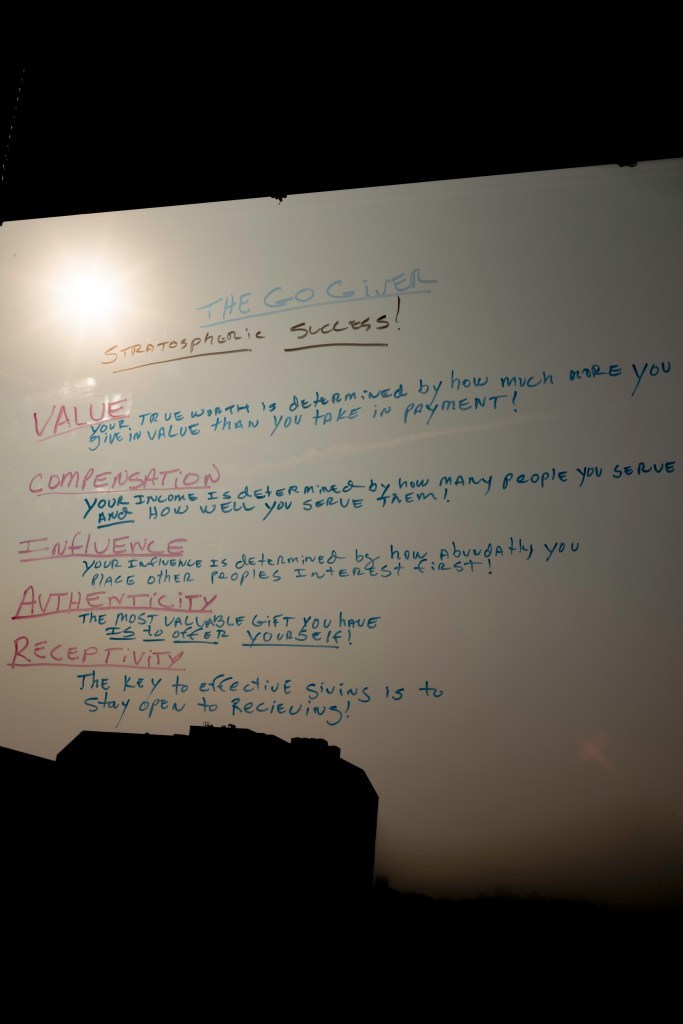 THE GO GIVER
STRATOSPHERIC SUCCESS!
VALUE
YOUR TRUE WORTH IS determined by how much more you
give in value than you take in payment!
COMPENSATION
YOUR INCOME IS determined by how many people you serve
AND HOW WELL YOU SERVE THEM!
INFLUENCE
YOUR INFLUENCE IS determined by how abundatly you
PLACE OTHER PEOPLES INTEREST FIRST!
AUTHENTICITY
THE MOST VALUABLE GIFT YOU HAVE
IS to offer yourself!
RECEPTIVITY
The key to effective giving is to
Stay open to Recieving!